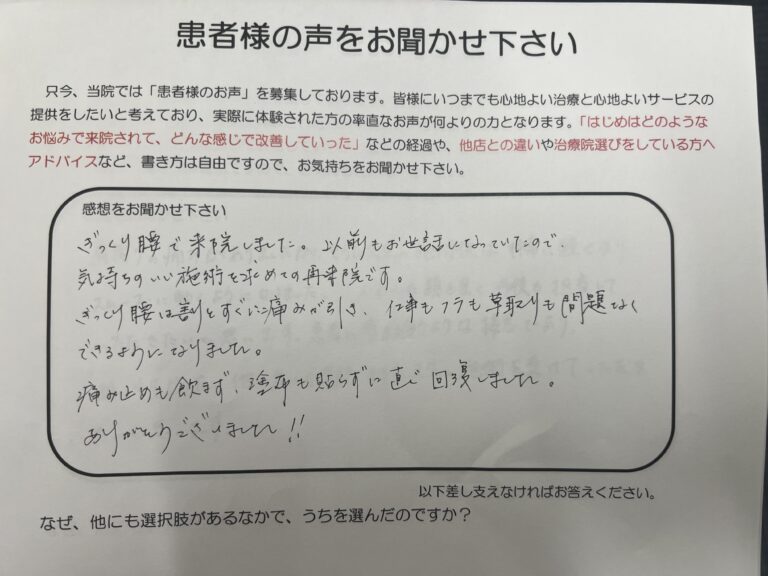 患者様の声をお聞かせ下さい
只今、当院では「患者様のお声」を募集しております。皆様にいつまでも心地よい治療と心地よいサービスの
提供をしたいと考えており、実際に体験された方の率直なお声が何よりの力となります。「はじめはどのような
お悩みで来院されて、どんな感じで改善していった」などの経過や、他店との違いや治療院選びをしている方へ
アドバイスなど、書き方は自由ですので、お気持ちをお聞かせ下さい。
感想をお聞かせ下さい
ぎっくり腰で来院しました。以前もお世話になっていたので、
気持ちのいい施術を求めての再来院です。
ぎっくり腰は割とすぐに痛みが引き、仕事もフラも草取りも問題なく
できるようになりました。
痛み止めも飲まず、塗布も貼らずに直ぐ回復しました。
ありがとうございました!!
以下差し支えなければお答えください。
なぜ、他にも選択肢があるなかで、うちを選んだのですか？